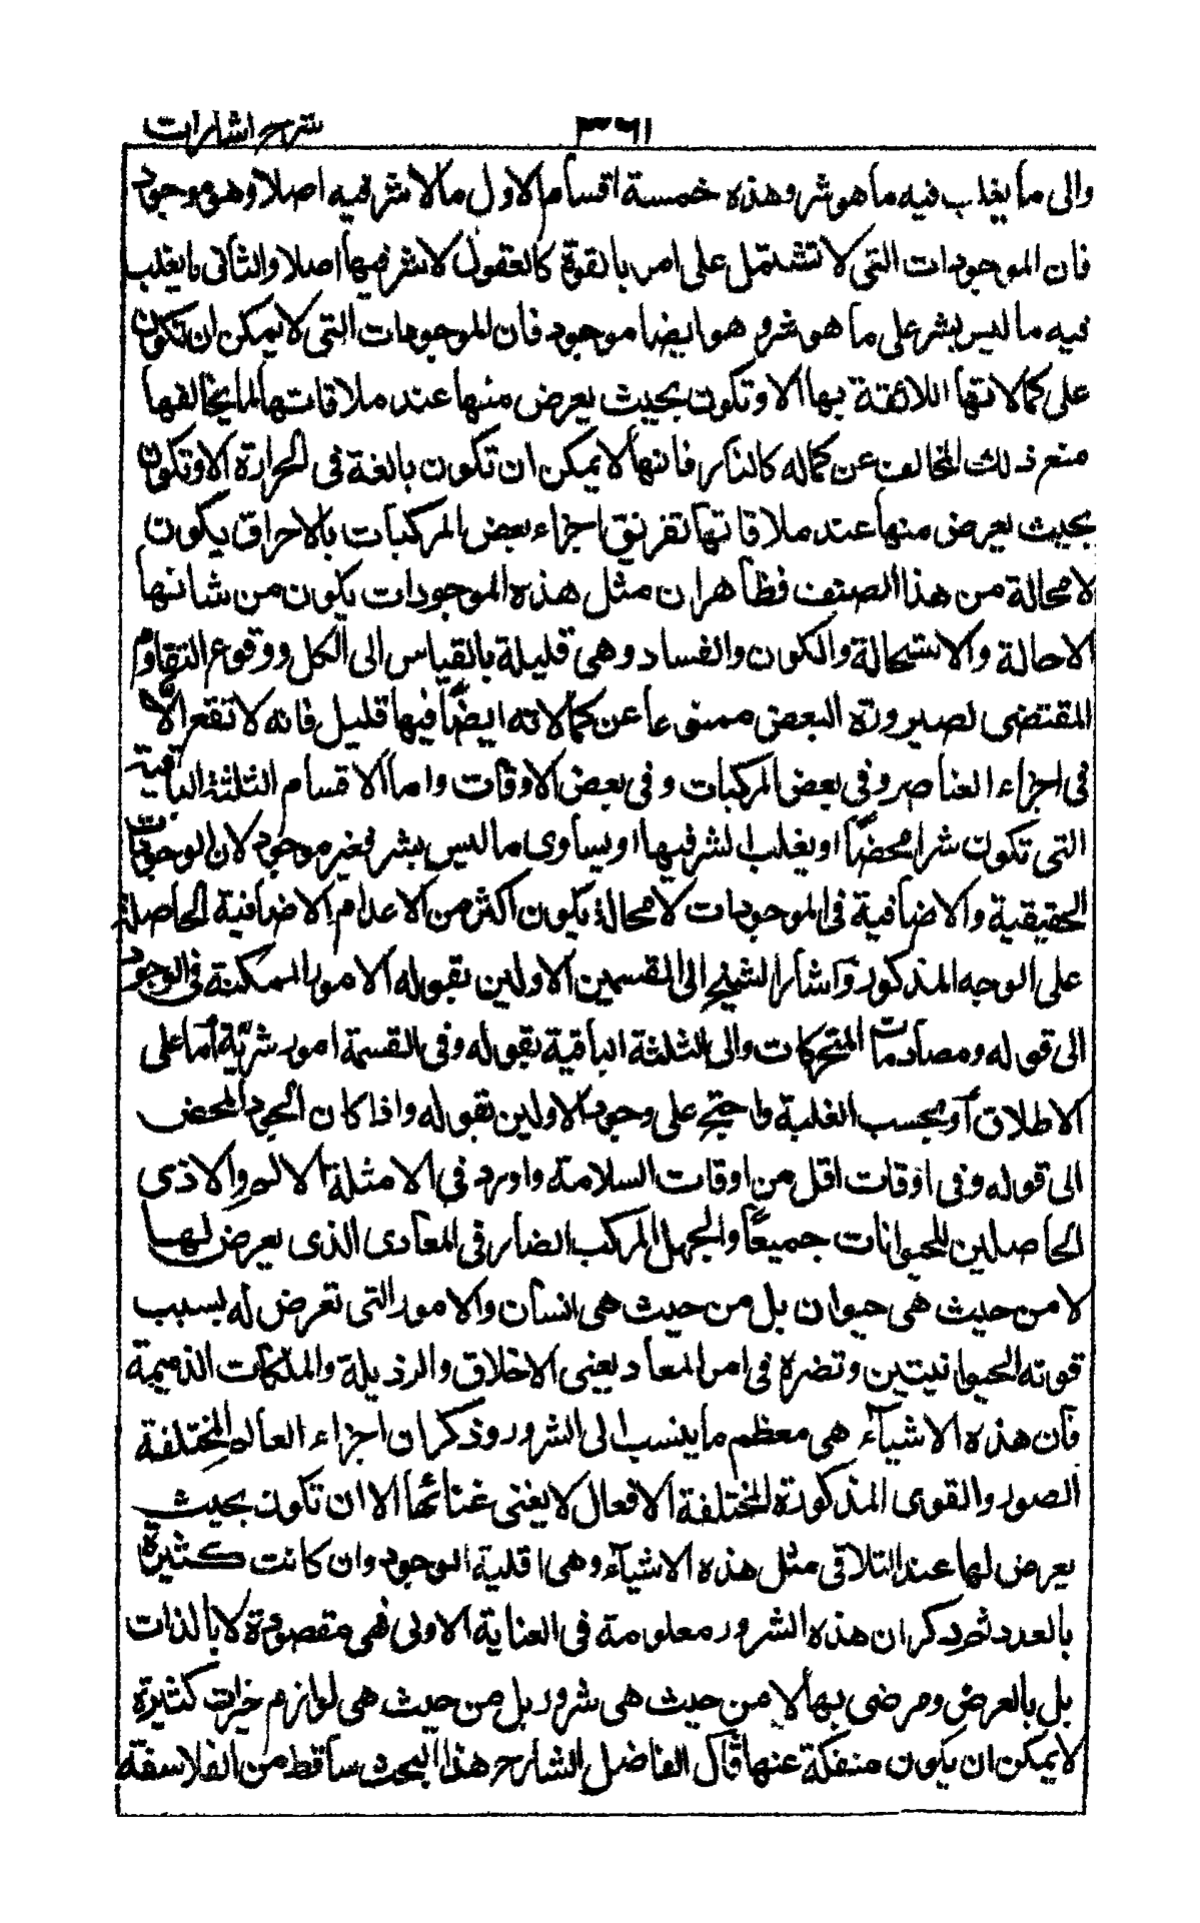 شرح اشارات ٣٦١
والى ما يغلب فيه ما هو شر وهذه خمسة اقسام الاول ما لا شر فيه اصلا وهو موجود
فان الموجودات التي لا تشتمل على امر بالقوة كالعقول لا شر فيها اصلا والثاني ما يغلب
فيه ما ليس بشر على ما هو شر و هو ايضا موجود فان الموجودات التي لا يمكن ان تكون
على كمالاتها اللائقة بها الا وتكون بحيث يعرض منها عند ملاقاتها لما يخالفها
منع ذلك المخالف عن كماله كالنار فانها لا يمكن ان تكون بالغة في الحرارة الا وتكون
بحيث يعرض منها عند ملاقاتها تفريق اجزاء بعض المركبات بالاحراق يكون
لا محالة من هذا الصنف فظاهر ان مثل هذه الموجودات يكون من شانها
الاحالة والاستحالة والكون والفساد وهي قليلة بالقياس الى الكل ووقوع التقاوم
المقتضى لصيرورة البعض ممنوعا عن كمالاته ايضًا فيها قليل فانه لا تقع الّا
في اجزاء العناصر وفي بعض المركبات وفي بعض الاوقات واما الاقسام الثلثة الباقية
التي تكون شرا محضًا او يغلب الشر فيها او يساوى ما ليس بشر فغير موجود لان الوجودات
الحقيقية والاضافية في الموجودات لا محالة يكون اكثر من الاعدام الاضافية الحاصلة
على الوجه المذكور واشار الشيخ الى القسمين الاولين بقوله الامور الممكنة في الوجود
الى قوله ومصادمات المتحركات والى الثلثة الباقية بقوله وفي القسمة امور شريّة اما على
الاطلاق او بحسب الغلبة واحتج على وجود الاولين بقوله واذا كان الجود المحض
الى قوله وفي اوقات اقل من اوقات السلامة واورد في الامثلة الالم والاذى
الحاصلين للحيوانات جميعًا والجهل المركب الضار في المعادى الذى يعرض لها
لا من حيث هي حيوان بل من حيث هي انسان والامور التي تعرض له بسبب
قوته الحيوانيتين وتضره في امر المعاد يعني الاخلاق والرذيلة والملكات الذميمة
فان هذه الاشيآء هي معظم ما ينسب الى الشرور وذكر ان اجزاء العالم المختلفة
الصور والقوى المذكورة المختلفة الافعال لا يغنى غنائها الا ان تكون بحيث
يعرض لها عند التلاقى مثل هذه الاشيآء وهى اقلية الوجود وان كانت كثيرة
بالعدد ثم ذكر ان هذه الشرور معلومة في العناية الاولى فهي مقصودة لا بالذات
بل بالعرض ومرضى بها لا من حيث هي شرور بل من حيث هي لوازم خيرات كثيرة
لا يمكن ان يكون منفكة عنها قال الفاضل الشارح هذا البحث ساقط من الفلاسفة